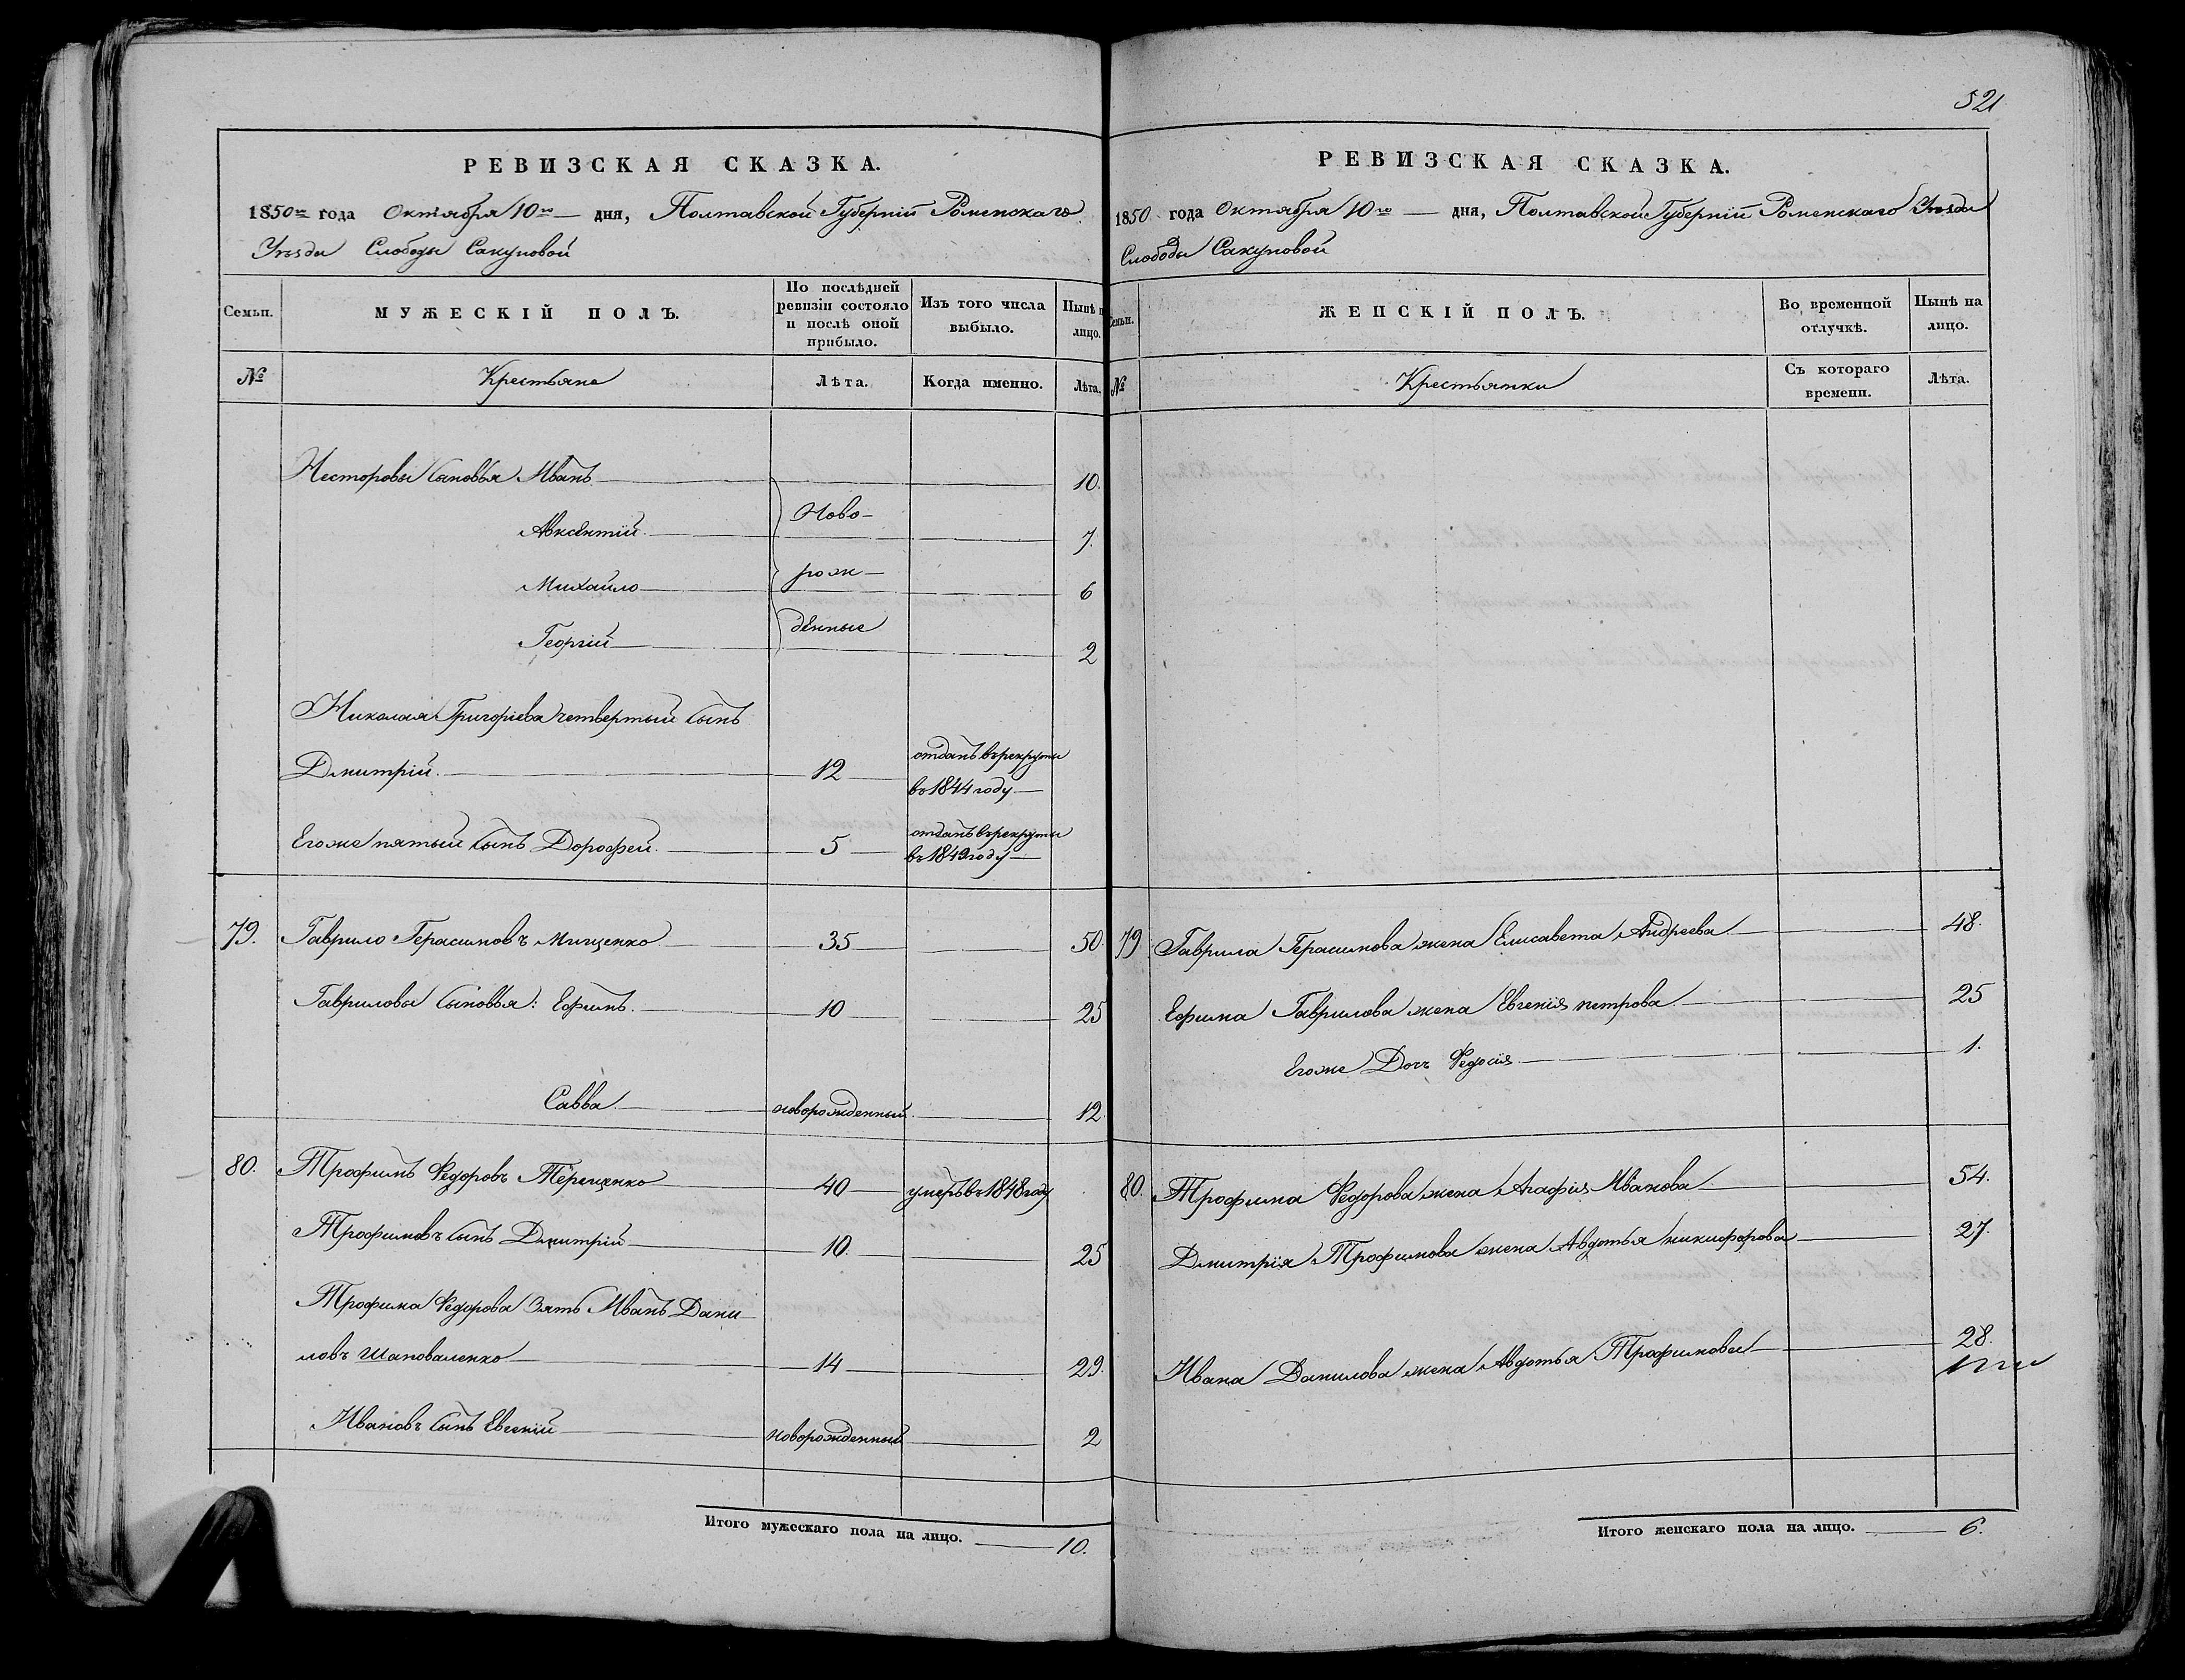 РЕВИЗСКАЯ СКАЗКА.
1850го года Октября 10го — дня, Полтавской Губерніи Роменскаго
Уѣзда Слободы Сакуновой
Семьи. МУЖЕСКІЙ ПОЛЪ. По послѣдней ревизіи состояло и послѣ оной прибыло. Изъ того числа выбыло. Нынѣ на лицо.
№ Крестьяне Лѣта. Когда именно. Лѣта.
Несторовы Сыновья Иванъ 10.
Ново-
Авксентій 7.
рож-
Михайло 6
денные
Георгій 2
Николая Григоріева четвертый Сынъ
Дмитрій. 12 отданъ въ рекруты въ 1844 году
Егоже пятый Сынъ Дорофей 5 отданъ въ рекруты въ 1849 году
79. Гаврило Герасимовъ Мищенко 35 50
Гавриловы Сыновья: Ефимъ. 10 25
Савва новорожденный 12
80. Трофимъ Федоровъ Терещенко 40 умеръ въ 1848 году
Трофимовъ Сынъ Дмитрій 10. 25
Трофима Федорова Зять Иванъ Дани
ловъ Шаповаленко 14 29.
Ивановъ Сынъ Евгеній новорожденный 2
Итого мужескаго пола на лицо. 10.
521
РЕВИЗСКАЯ СКАЗКА.
1850 года Октября 10го — дня, Полтавской Губерніи Роменскаго Уѣзда
Слободы Сакуновой
Семьи. ЖЕНСКІЙ ПОЛЪ. Во временной отлучкѣ. Нынѣ на лицо.
№ Крестьянки Съ котораго времени. Лѣта.
79 Гаврила Герасимова жена Елисавета Андреева 48.
Ефима Гаврилова жена Евгенія петрова 25
Егоже Дочь Федосія 1.
80. Трофима Федорова жена Агафія Иванова 54.
Дмитрія Трофимова жена Авдотья никифорова 27.
Ивана Данилова жена Авдотья Трофимова 28.
Итого женскаго пола на лицо. 6.